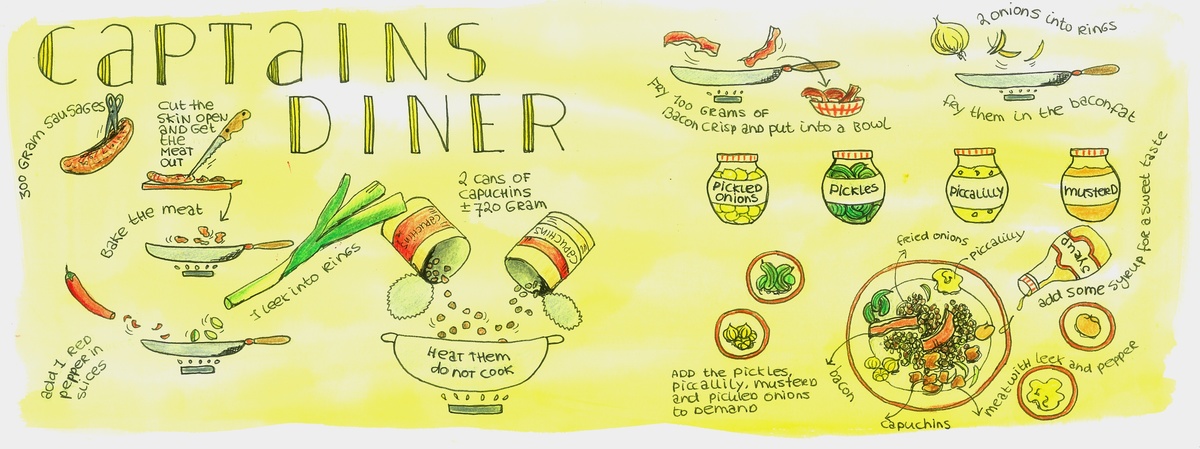 CAPTAINS
DINER
300 GRAM SAUSAGES
CUT the
SKIN OPEN
AND GET
the
MEAT
OUT
BAKE the MEAT
add 1 RED
pepper in
slices
1 leek into RINGS
2 CANS OF
CAPUCHINS
± 720 GRAM
CAPUCHINS
CAPUCHINS
HEAT THEM
do NOT COOK
FRY 100 GRAMS OF
BACON CRISP AND put into a BOWL
2 onions into RINGS
fry them in the baconfat
PICKLED
ONIONS
PICKLES
PICCALILLY
musterd
SYRUP
add some syrup for a sweet taste
fried onions
piccalilly
bacon
capuchins
meat with leek and pepper
ADD the pickles,
piccalilly, musterd
and pickled onions
to DEMAND